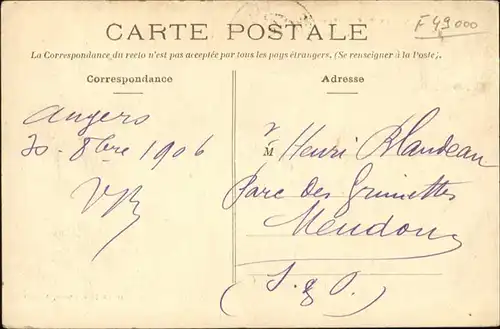 CARTE POSTALE
F49000
La Correspondance du recto n'est pas acceptée par tous les pays étrangers. (Se renseigner à la Poste).
Correspondance
Adresse
Angers
30 - 8bre 1906
VB
M Henri Blandeau
Parc des Grimettes
Meudon
(S. & O.)